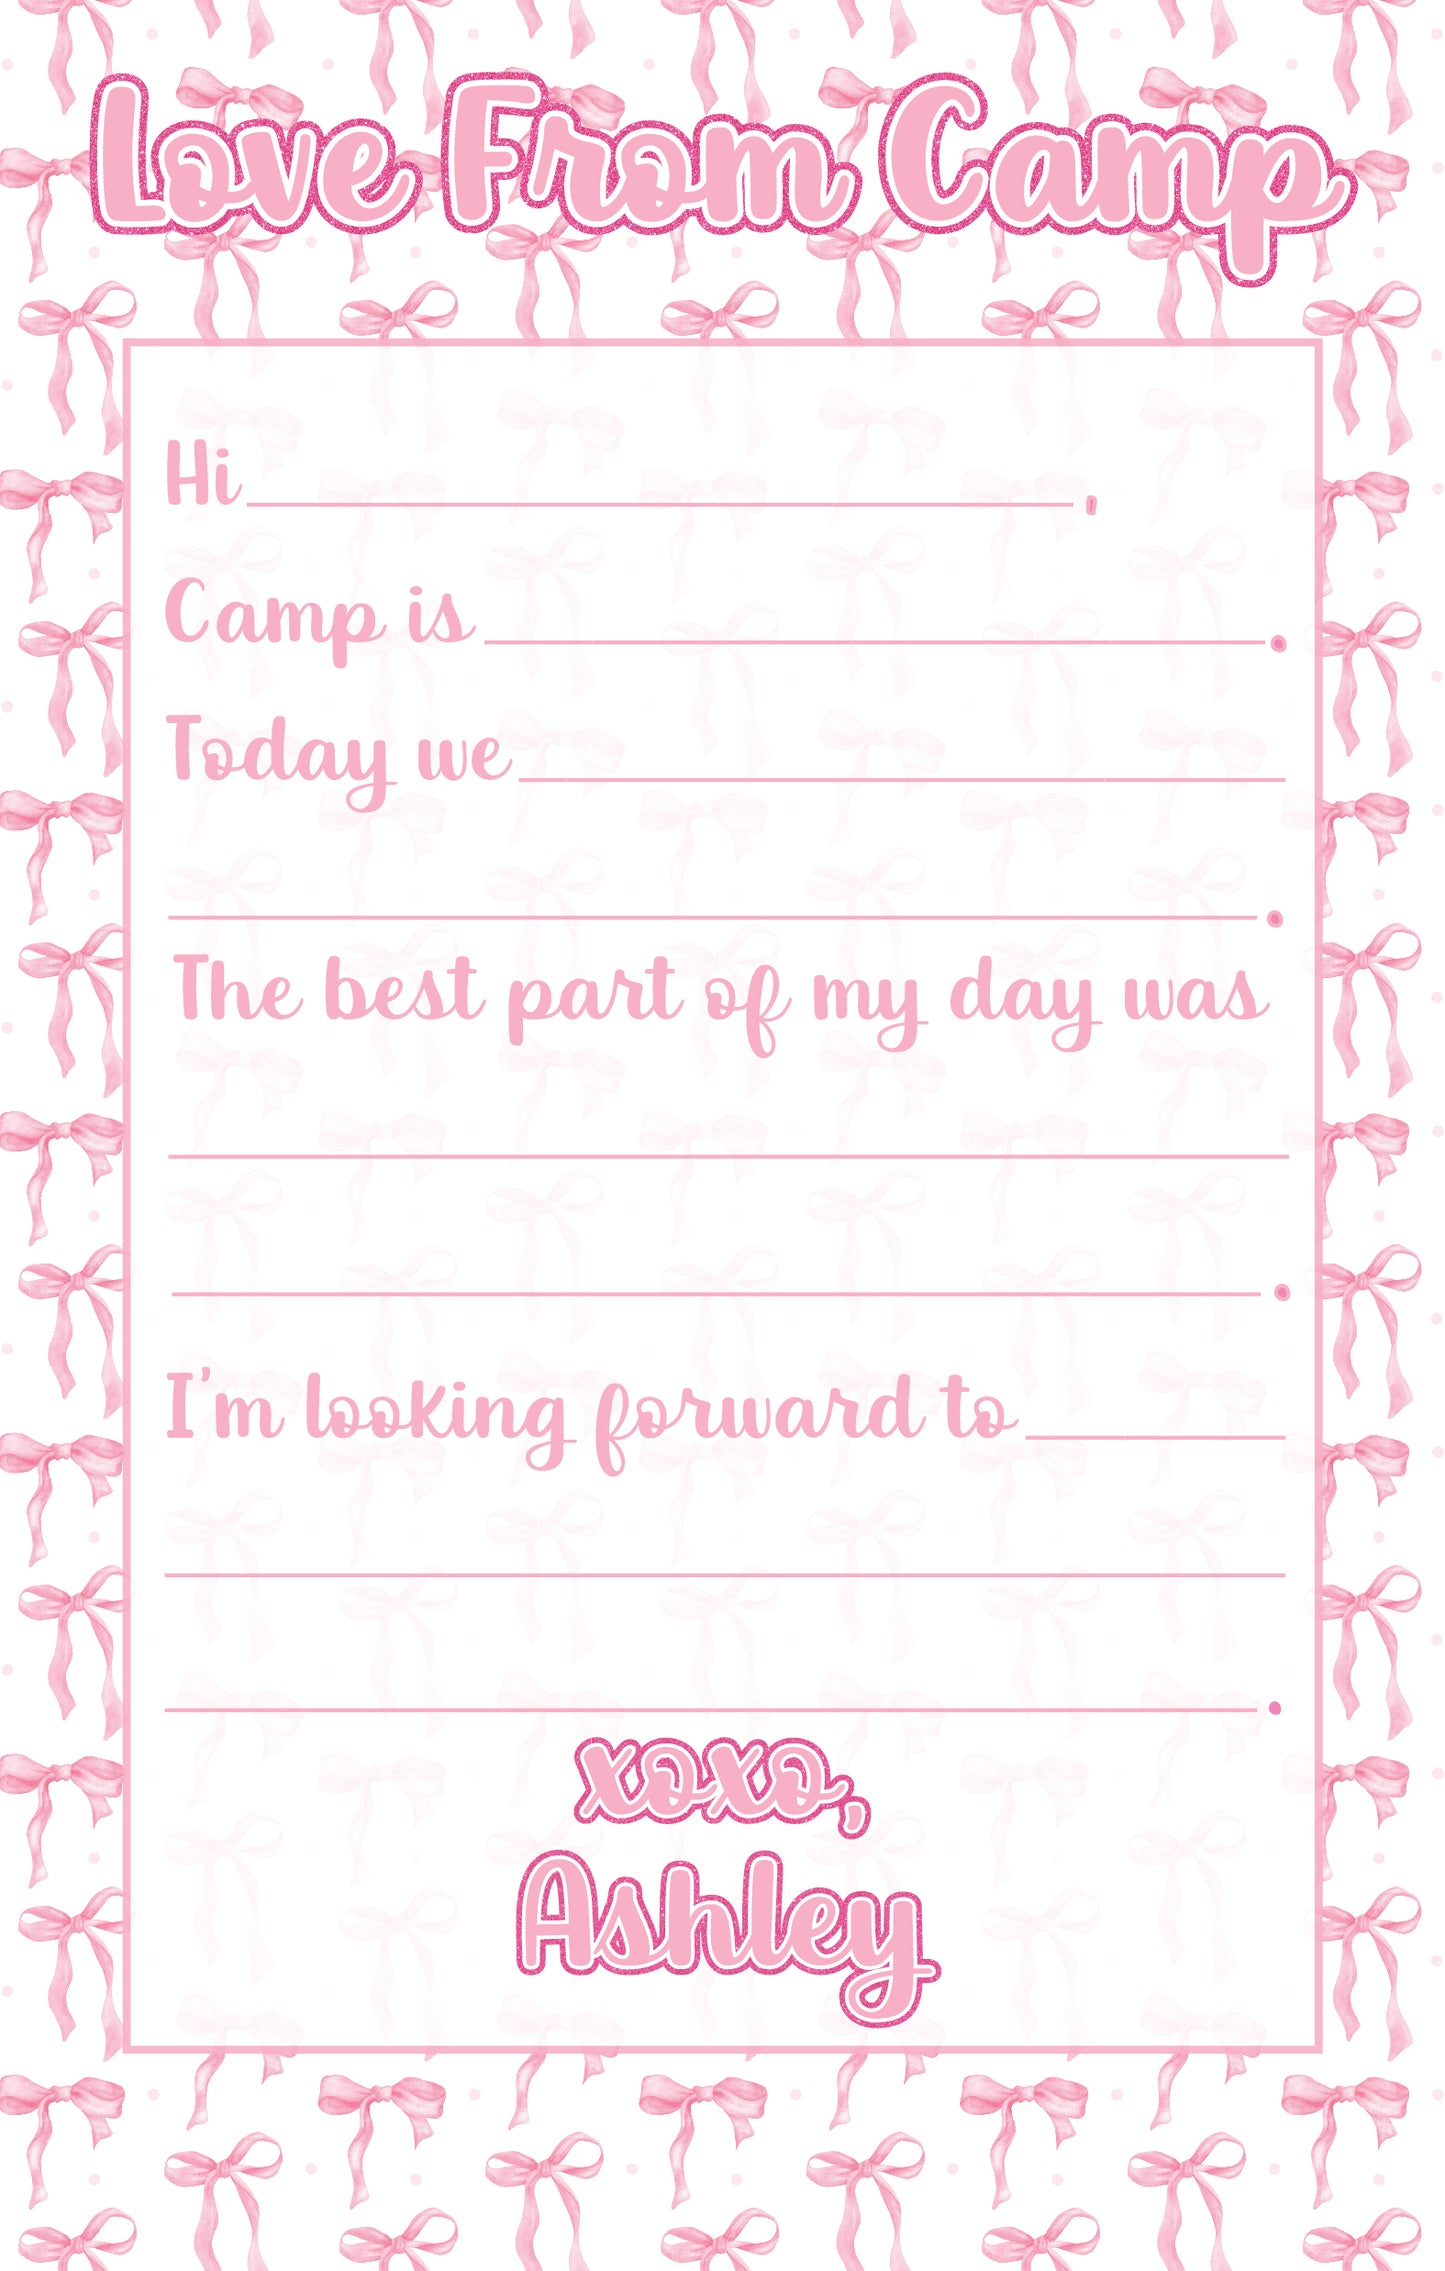 Love From Camp
Hi ,
Camp is .
Today we
.
The best part of my day was
.
I'm looking forward to
.
xoxo,
Ashley